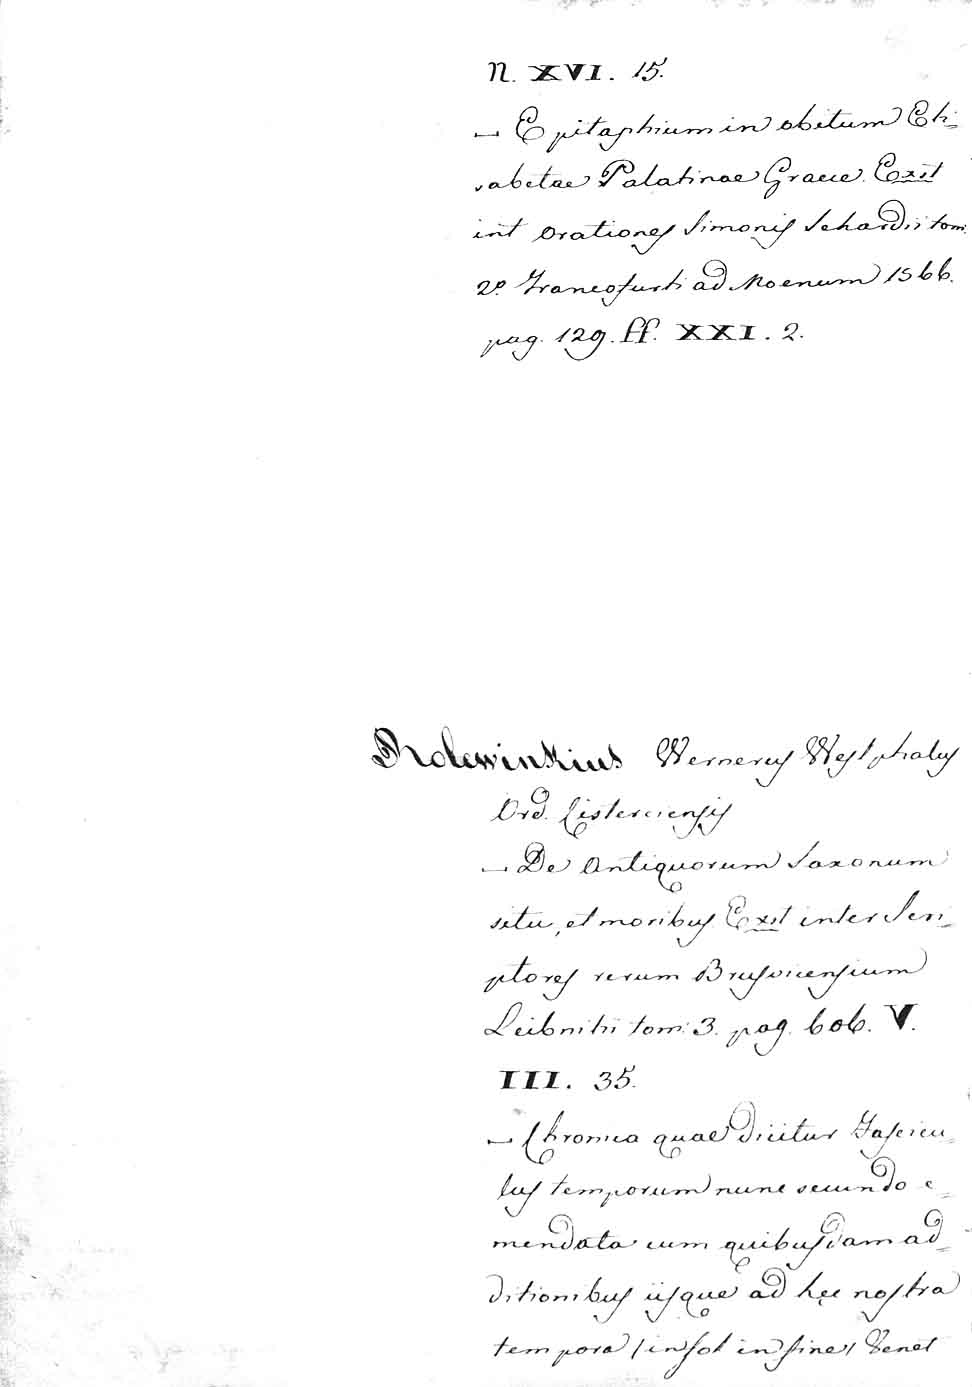 N. XVI. 15.
— Epitaphium in obitum Eli-
sabetae Palatinae Graece. Exst
int orationes Simonis Schardii tom.
2º. Francofurti ad Moenum 1566.
pag. 129. ff. XXI. 2.
Rolewinkius Wernerus Westphalus
Ord. Cisterciensis
— De Antiquorum Saxonum
situ, et moribus. Exst inter Scri-
ptores rerum Brusvicensium
Leibnitii tom. 3. pag. 606. V.
III. 35.
— Chronica quae dicitur Fascicu-
lus temporum nunc secundo e-
mendata cum quibusdam ad-
ditionibus usque ad hęc nostra
tempora (in fol in fine) Venet